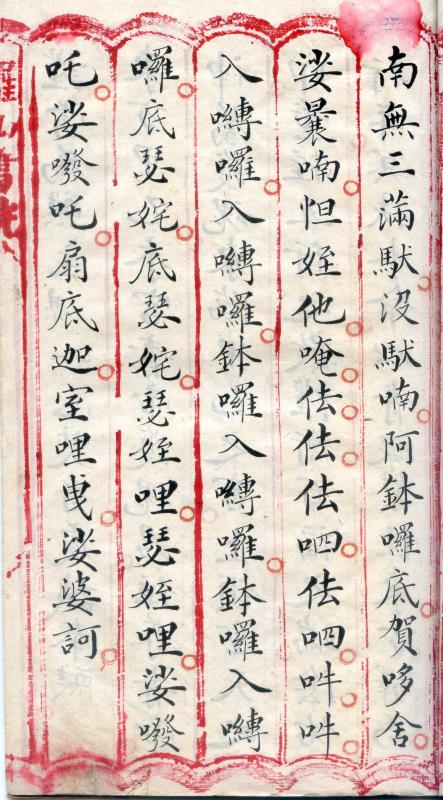 南無三滿馱沒馱喃阿鉢囉底賀哆舍
娑曩喃怛姪他唵佉佉佉呬佉呬吽吽
入嚩囉入嚩囉鉢囉入嚩囉鉢囉入嚩
囉底瑟姹底瑟姹瑟姪哩瑟姪哩娑癹
吒娑癹吒扇底迦室哩曳娑婆訶